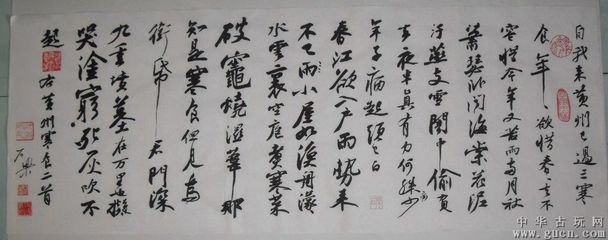 自我来黄州已過三寒
食年〻欲惜春〻去不
容惜今年又苦雨兩月秋
蕭瑟卧聞海棠花泥
汙燕支雪闇中偷負
去夜半真有力何殊少
年子病起頭已白
春江欲入户雨勢来
不已雨小屋如漁舟濛
水雲裏空庖煮寒菜
破竈燒濕葦那
知是寒食但見烏
銜帋君門深
九重墳墓在万里也擬
哭塗窮死灰吹不
起 右黄州寒食二首
中华古玩网
www.gucn.com